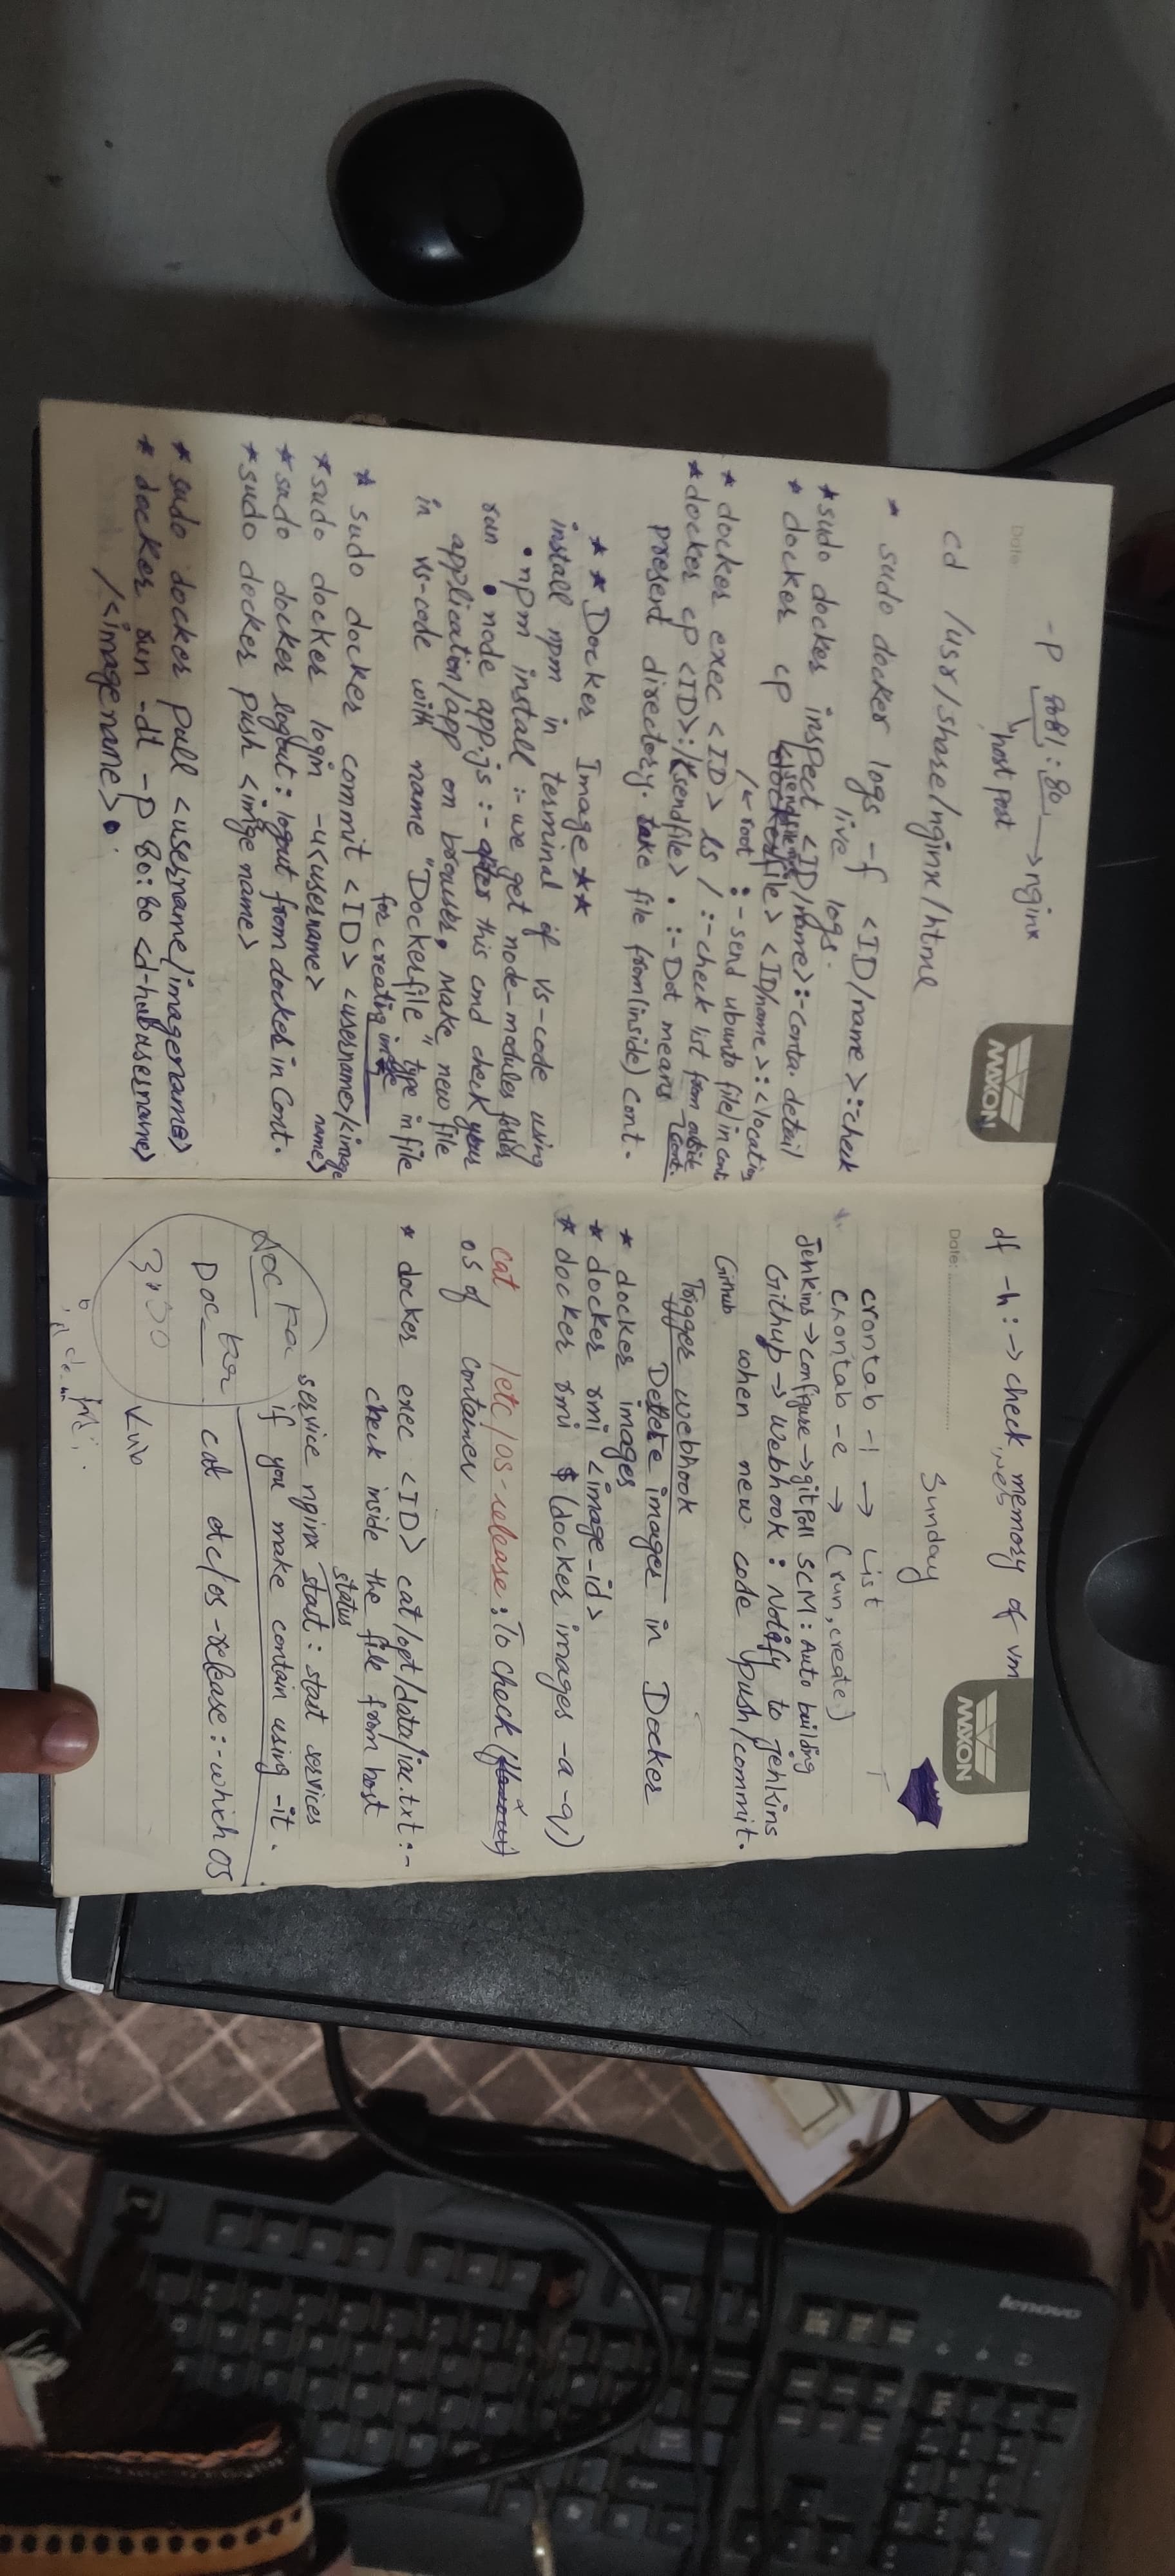 Date
MAXON
-P 8081:80 → nginx
host post
cd /usr/share/nginx/html
* sudo docker logs -f <ID/name> :- check
live logs.
* sudo docker inspect <ID/name> :- conta. detail
* docker cp <sendfile> <ID/name>:<location
/ ← root :- send ubunto file/in cont
* docker exec <ID> ls / :- check list from
cont.
* docker cp <ID>:/<sendfile> . :- Dot means
present directory. take file from(inside) cont.
** Docker Image **
install npm in terminal of vs-code using
• npm install :- we get node-modules folder
run • node app.js :- after this cmd check your
application/app on browser. Make new file
in vs-code with name "Dockerfile" type in file
for creating image
* sudo docker commit <ID> <username>/<image
name>
* sudo docker login -u <username>
* sudo docker logout : logout from docker in Cont.
* sudo docker push <imge name>
* sudo docker pull <username/imagename>
* docker run -dt -p 80:80 <d-hubusername>
/<imagename>
Date:
MAXON
df -h : → check memory of vm
Sunday
crontab -l → List
crontab -e → (run, create)
Jenkins → configure → git poll SCM : Auto building
Githup → Webhook : Notify to Jenkins
Github when new code push/commit.
Trigger webhook
Delete images in Docker
* docker images
* docker rmi <image-id>
* docker rmi $(docker images -a -q)
cat /etc/os-release : To check
os of container
* docker exec <ID> cat /opt/data/iac.txt :-
check inside the file form host
status
service nginx start : start services
if you make contain using -it.
cat etc/os-release :- which OS